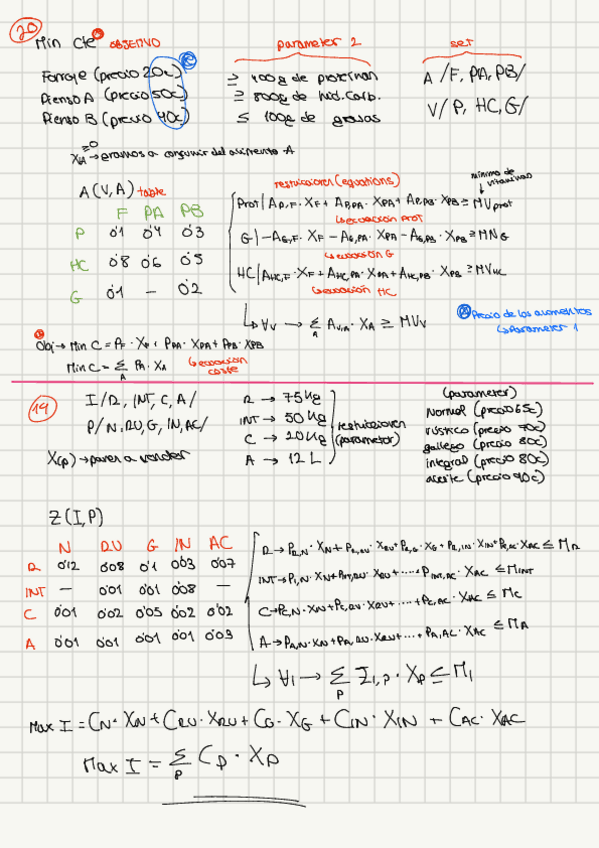 20
Min Cte OBJETIVO
parameter 2
set
Forraje (precio 20c) ≥ 400g de proteinan
Pienso A (precio 50c) ≥ 800g de hid.Carb.
Pienso B (precio 40c) ≤ 100g de grasas
A /F, PA, PB/
V/ P, HC, G/
XA → gramos a consumir del alimento A
≥0
A(V,A) table
F PA PB
P 0'1 0'4 0'3
HC 0'8 0'6 0'5
G 0'1 - 0'2
restricciones (equations)
minimo de vitaminas
Prot | AP,F · XF + AP,PA · XPA + AP,PB · XPB ≥ MVprot
↳ ecuación PROT
G | -AG,F · XF - AG,PA · XPA - AG,PB · XPB ≥ MNG
↳ ecuación G
HC | AHC,F · XF + AHC,PA · XPA + AHC,PB · XPB ≥ MVHC
↳ ecuación HC
↳ ∀v → Σ AV,A · XA ≥ MVV
A
Precio de los alimentos
↳ Parameter 1
Obj → Min C = PF · XF + PPA · XPA + PPB · XPB
Min C = Σ PA · XA ↳ ecuación coste
A
19
I/R, INT, C, A/
P/N, RU, G, IN, AC/
X(P) → panes a vender
R → 75 Kg
INT → 50 Kg
C → 20 Kg
A → 12 L
restricciones
(parameter)
(parameter)
Normal (precio 65c)
rústico (precio 70c)
gallego (precio 80c)
integral (precio 80c)
aceite (precio 90c)
Z(I,P)
N RU G IN AC
R 0'12 0'08 0'1 0'03 0'07
INT - 0'01 0'01 0'08 -
C 0'01 0'02 0'05 0'02 0'02
A 0'01 0'01 0'01 0'01 0'03
R → PR,N · XN + PR,RU · XRU + PR,G · XG + PR,IN · XIN + PR,AC · XAC ≤ MR
INT → PI,N · XN + PINT,RU · XRU + ..... + PINT,AC · XAC ≤ MINT
C → PC,N · XN + PC,RU · XRU + .... + PC,AC · XAC ≤ MC
A → PA,N · XN + PA,RU · XRU + .... + PA,AC · XAC ≤ MA
↳ ∀I → Σ ZI,P · XP ≤ MI
P
Max I = CN · XN + CRU · XRU + CG · XG + CIN · XIN + CAC · XAC
Max I = Σ CP · XP
P